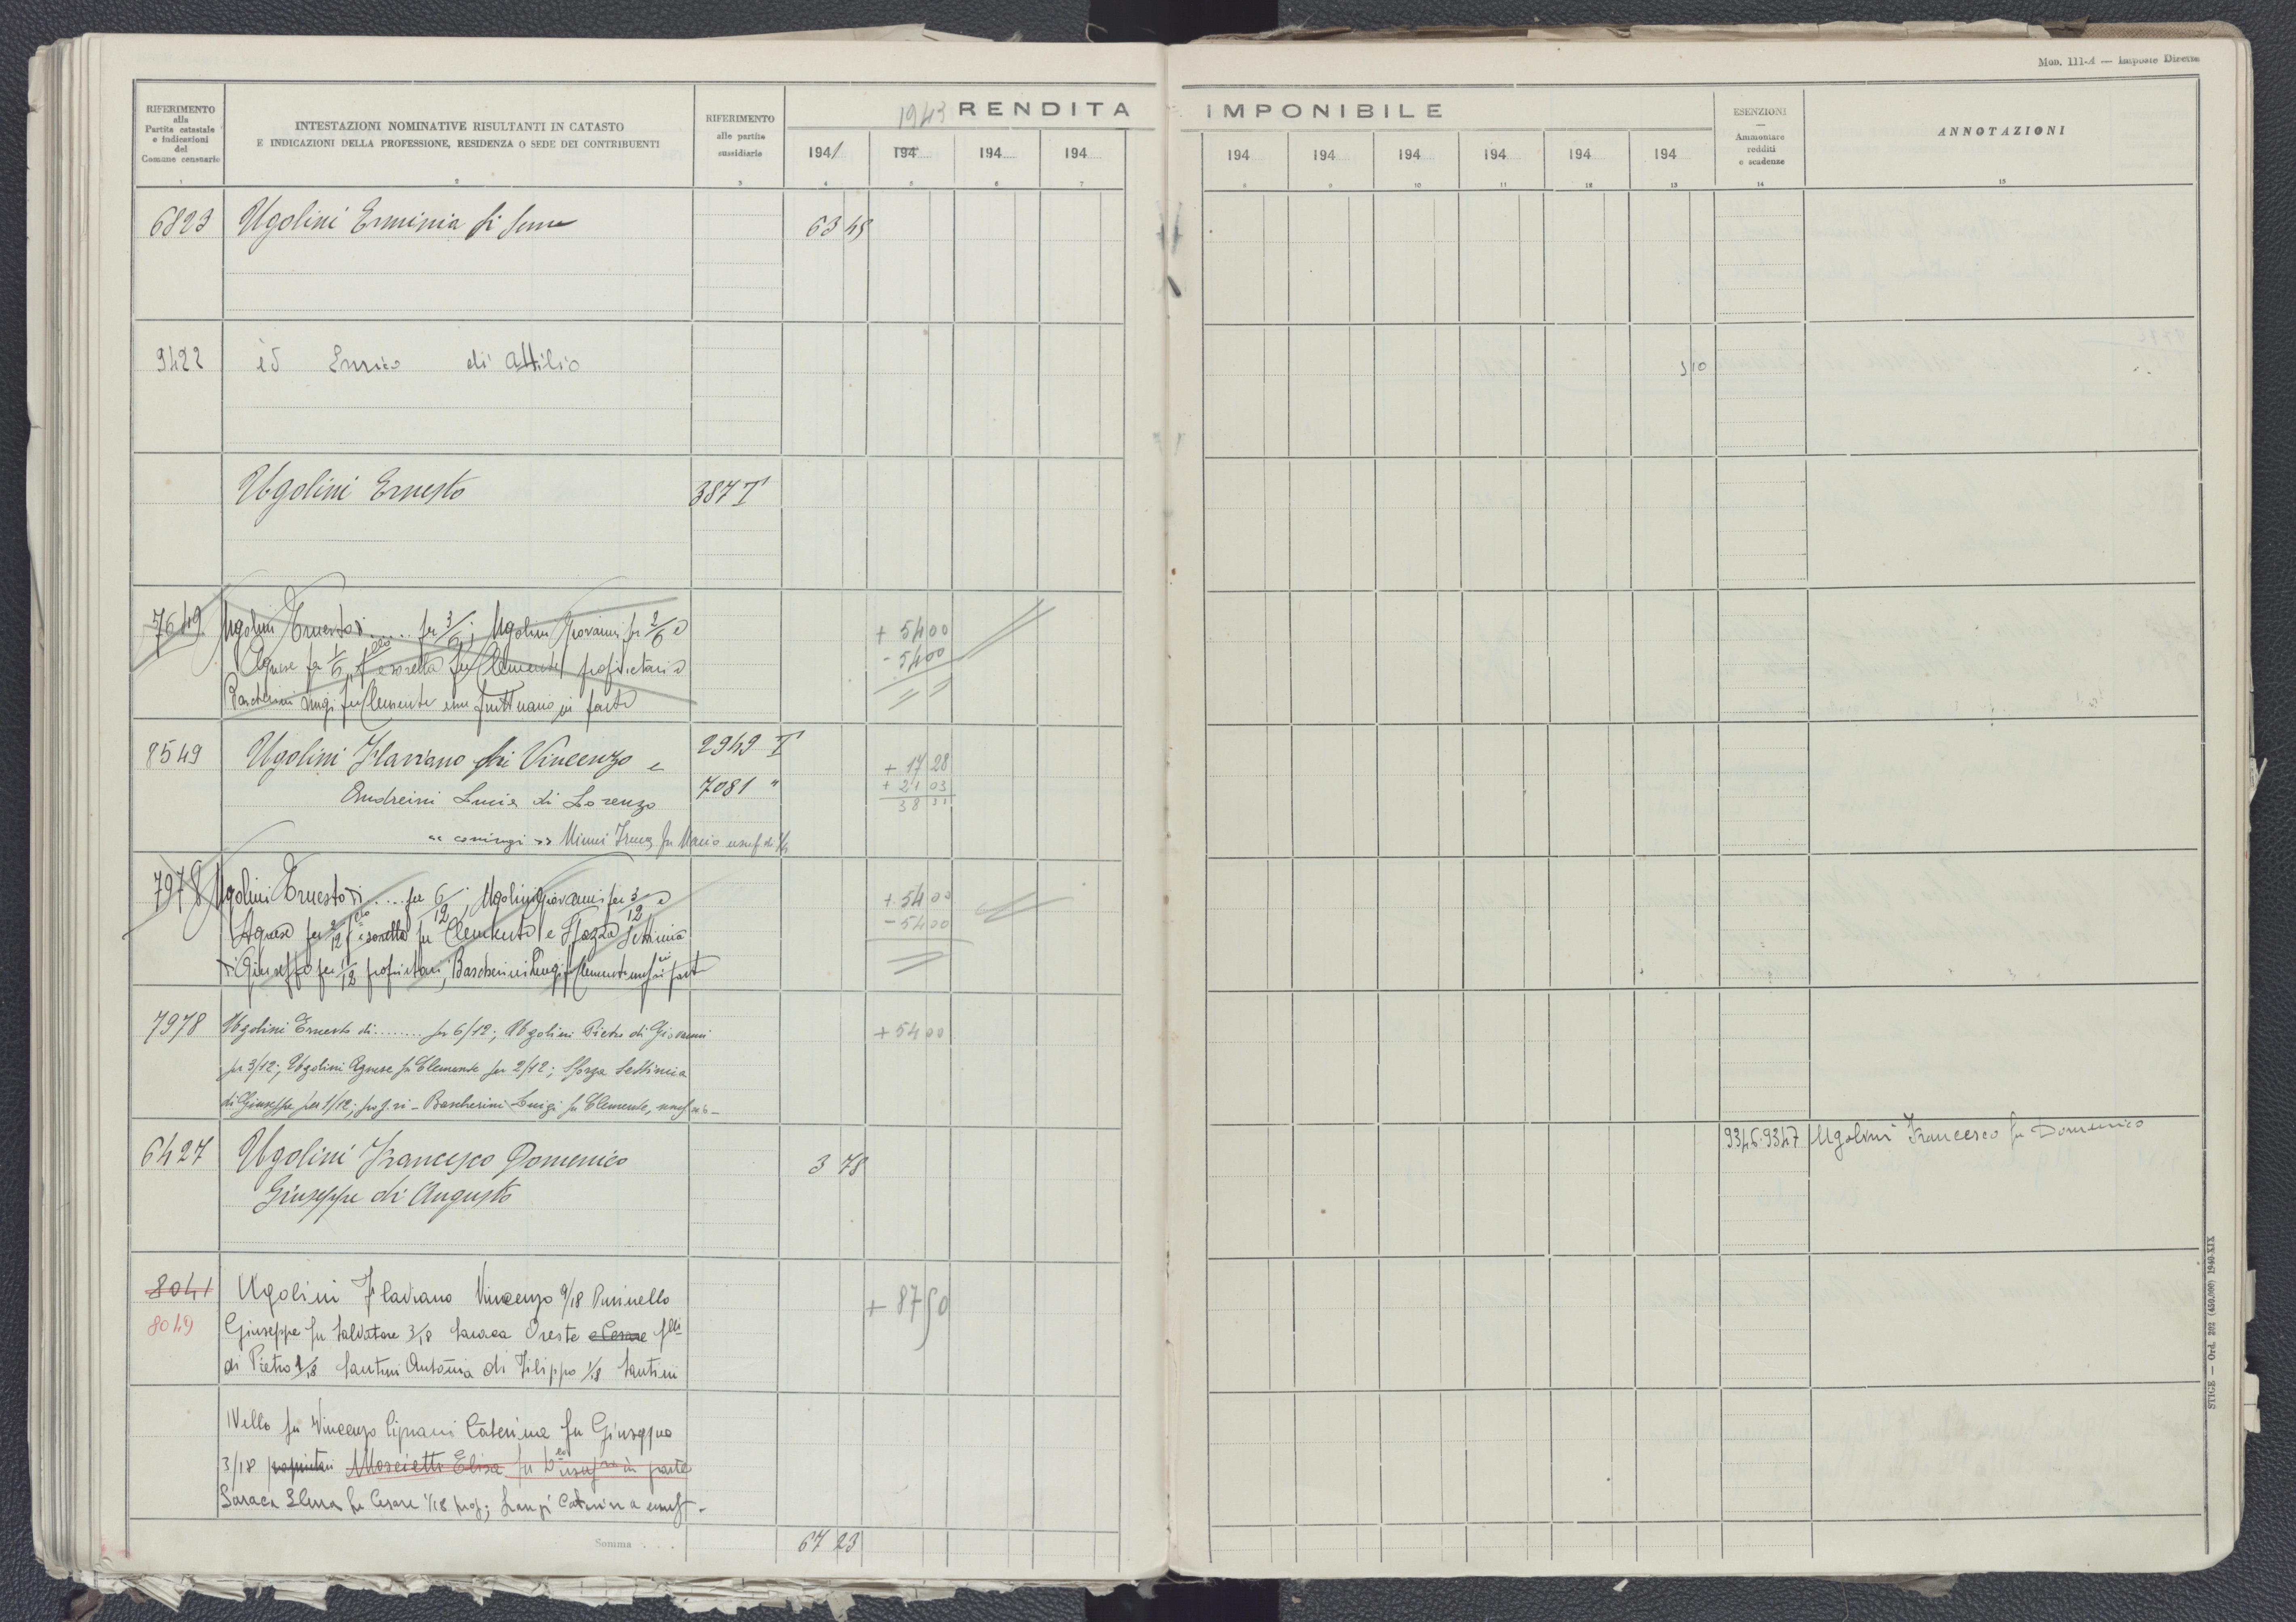 Mod. 111-A — Imposte Dirette
RIFERIMENTO
alla
Partita catastale
e indicazioni
del
Comune censuario
INTESTAZIONI NOMINATIVE RISULTANTI IN CATASTO
E INDICAZIONI DELLA PROFESSIONE, RESIDENZA O SEDE DEI CONTRIBUENTI
RIFERIMENTO
alle partite
sussidiarie
1943 RENDITA IMPONIBILE
1941 194 194 194 194 194 194 194 194 194
ESENZIONI
—
Ammontare
redditi
e scadenze
ANNOTAZIONI
1 2 3 4 5 6 7 8 9 10 11 12 13 14 15
6823 Ugolini Erminia 63 45
9422 id Enrico di Attilio 3 10
Ugolini Ernesto 387 T
7649 Ugolini Ernesto di ..... per 3/6; Ugolini Giovanni per 2/6 e + 54 00
Agnese per 1/6 f.llo e sorella fu Clemente proprietari e - 54 00
Bascherini Luigi fu Clemente usufruttuario in parte
8549 Ugolini Flaviano di Vincenzo e 2949 T + 17 28
Andreini Lucia di Lorenzo 7081 " + 21 03
« coniugi » Minni Irma fu Mario usuf. di 38 31
7978 Ugolini Ernesto di ..... per 6/12; Ugolini Giovanni per 3/12 e + 54 00
Agnese per 2/12 f.llo e sorella fu Clemente e Sforza Settimia - 54 00
di Giuseppe per 1/12 proprietari, Bascherini Luigi fu Clemente usuf. in part
7978 Ugolini Ernesto di ........ per 6/12; Ugolini Pietro di Giovanni + 54 00
per 3/12; Ugolini Agnese fu Clemente per 2/12; Sforza Settimia
di Giuseppe per 1/12; prop.ri - Bascherini Luigi fu Clemente, usuf.rio -
6427 Ugolini Francesco Domenico 3 78 9346-9347 Ugolini Francesco fu Domenico
Giuseppe di Augusto
8041 Ugolini Flaviano Vincenzo 9/18 Pusinello + 87 50
8049 Giuseppe fu Salvatore 3/18 Saraca Oreste e Cesare f.lli
di Pietro 1/18 Santini Antonia di Filippo 1/18 Santini
Nello fu Vincenzo Cipriani Caterina fu Giuseppe
3/18 proprietari Moscietti Elisa fu usuf. in parte
Saraca Elena fu Cesare 1/18 prop; Caterina usuf -
Somma . . . 67 23
STIGE — Ord. 302 (450.000) 1940-XIX